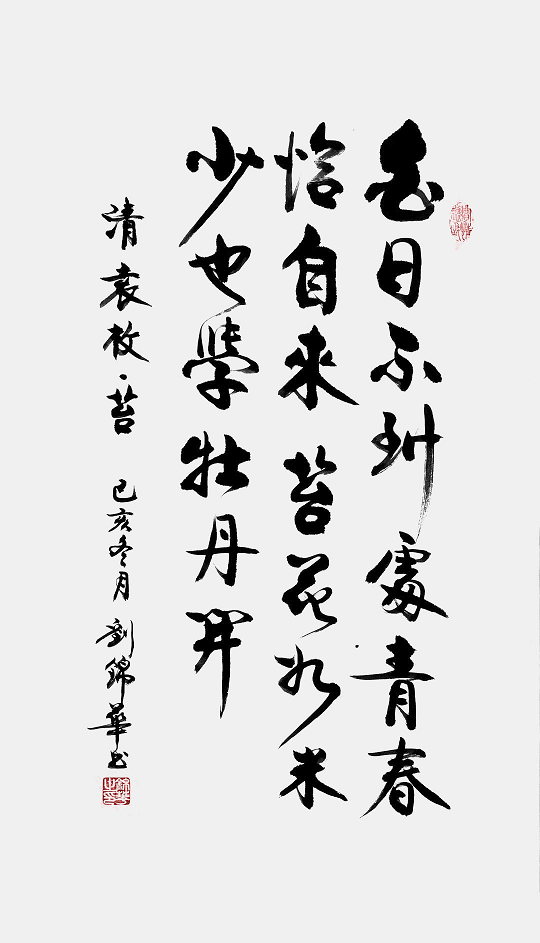 白日不到處青春
恰自來 苔花如米
小也學牡丹開
清袁枚·苔 己亥冬月 劉錦華书